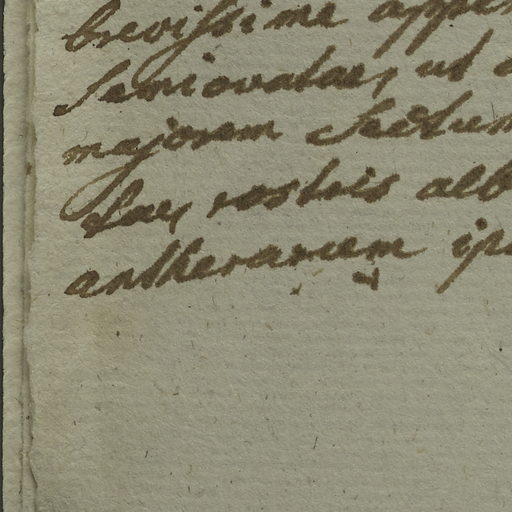 brevissime appen
Semiovatae, ut
majorem
lae, rostris alb
antherarum ips